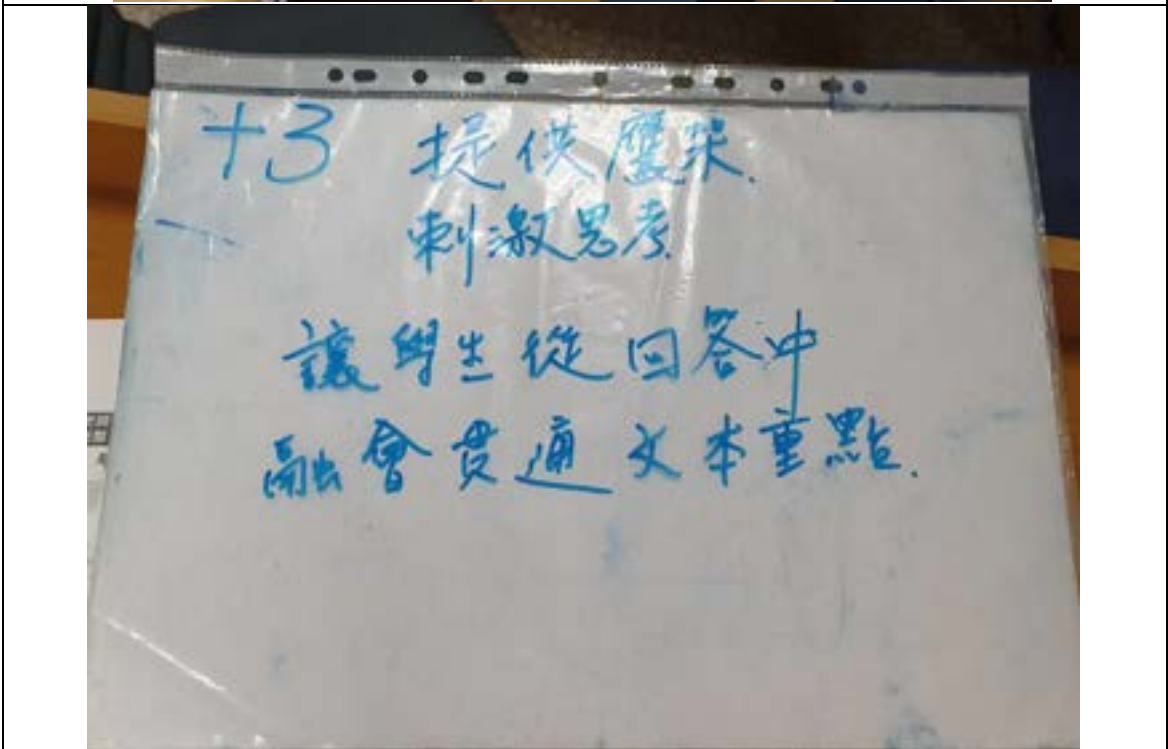 +3 提供鷹架.
刺激思考.
讓學生從回答中
融會貫通文本重點.